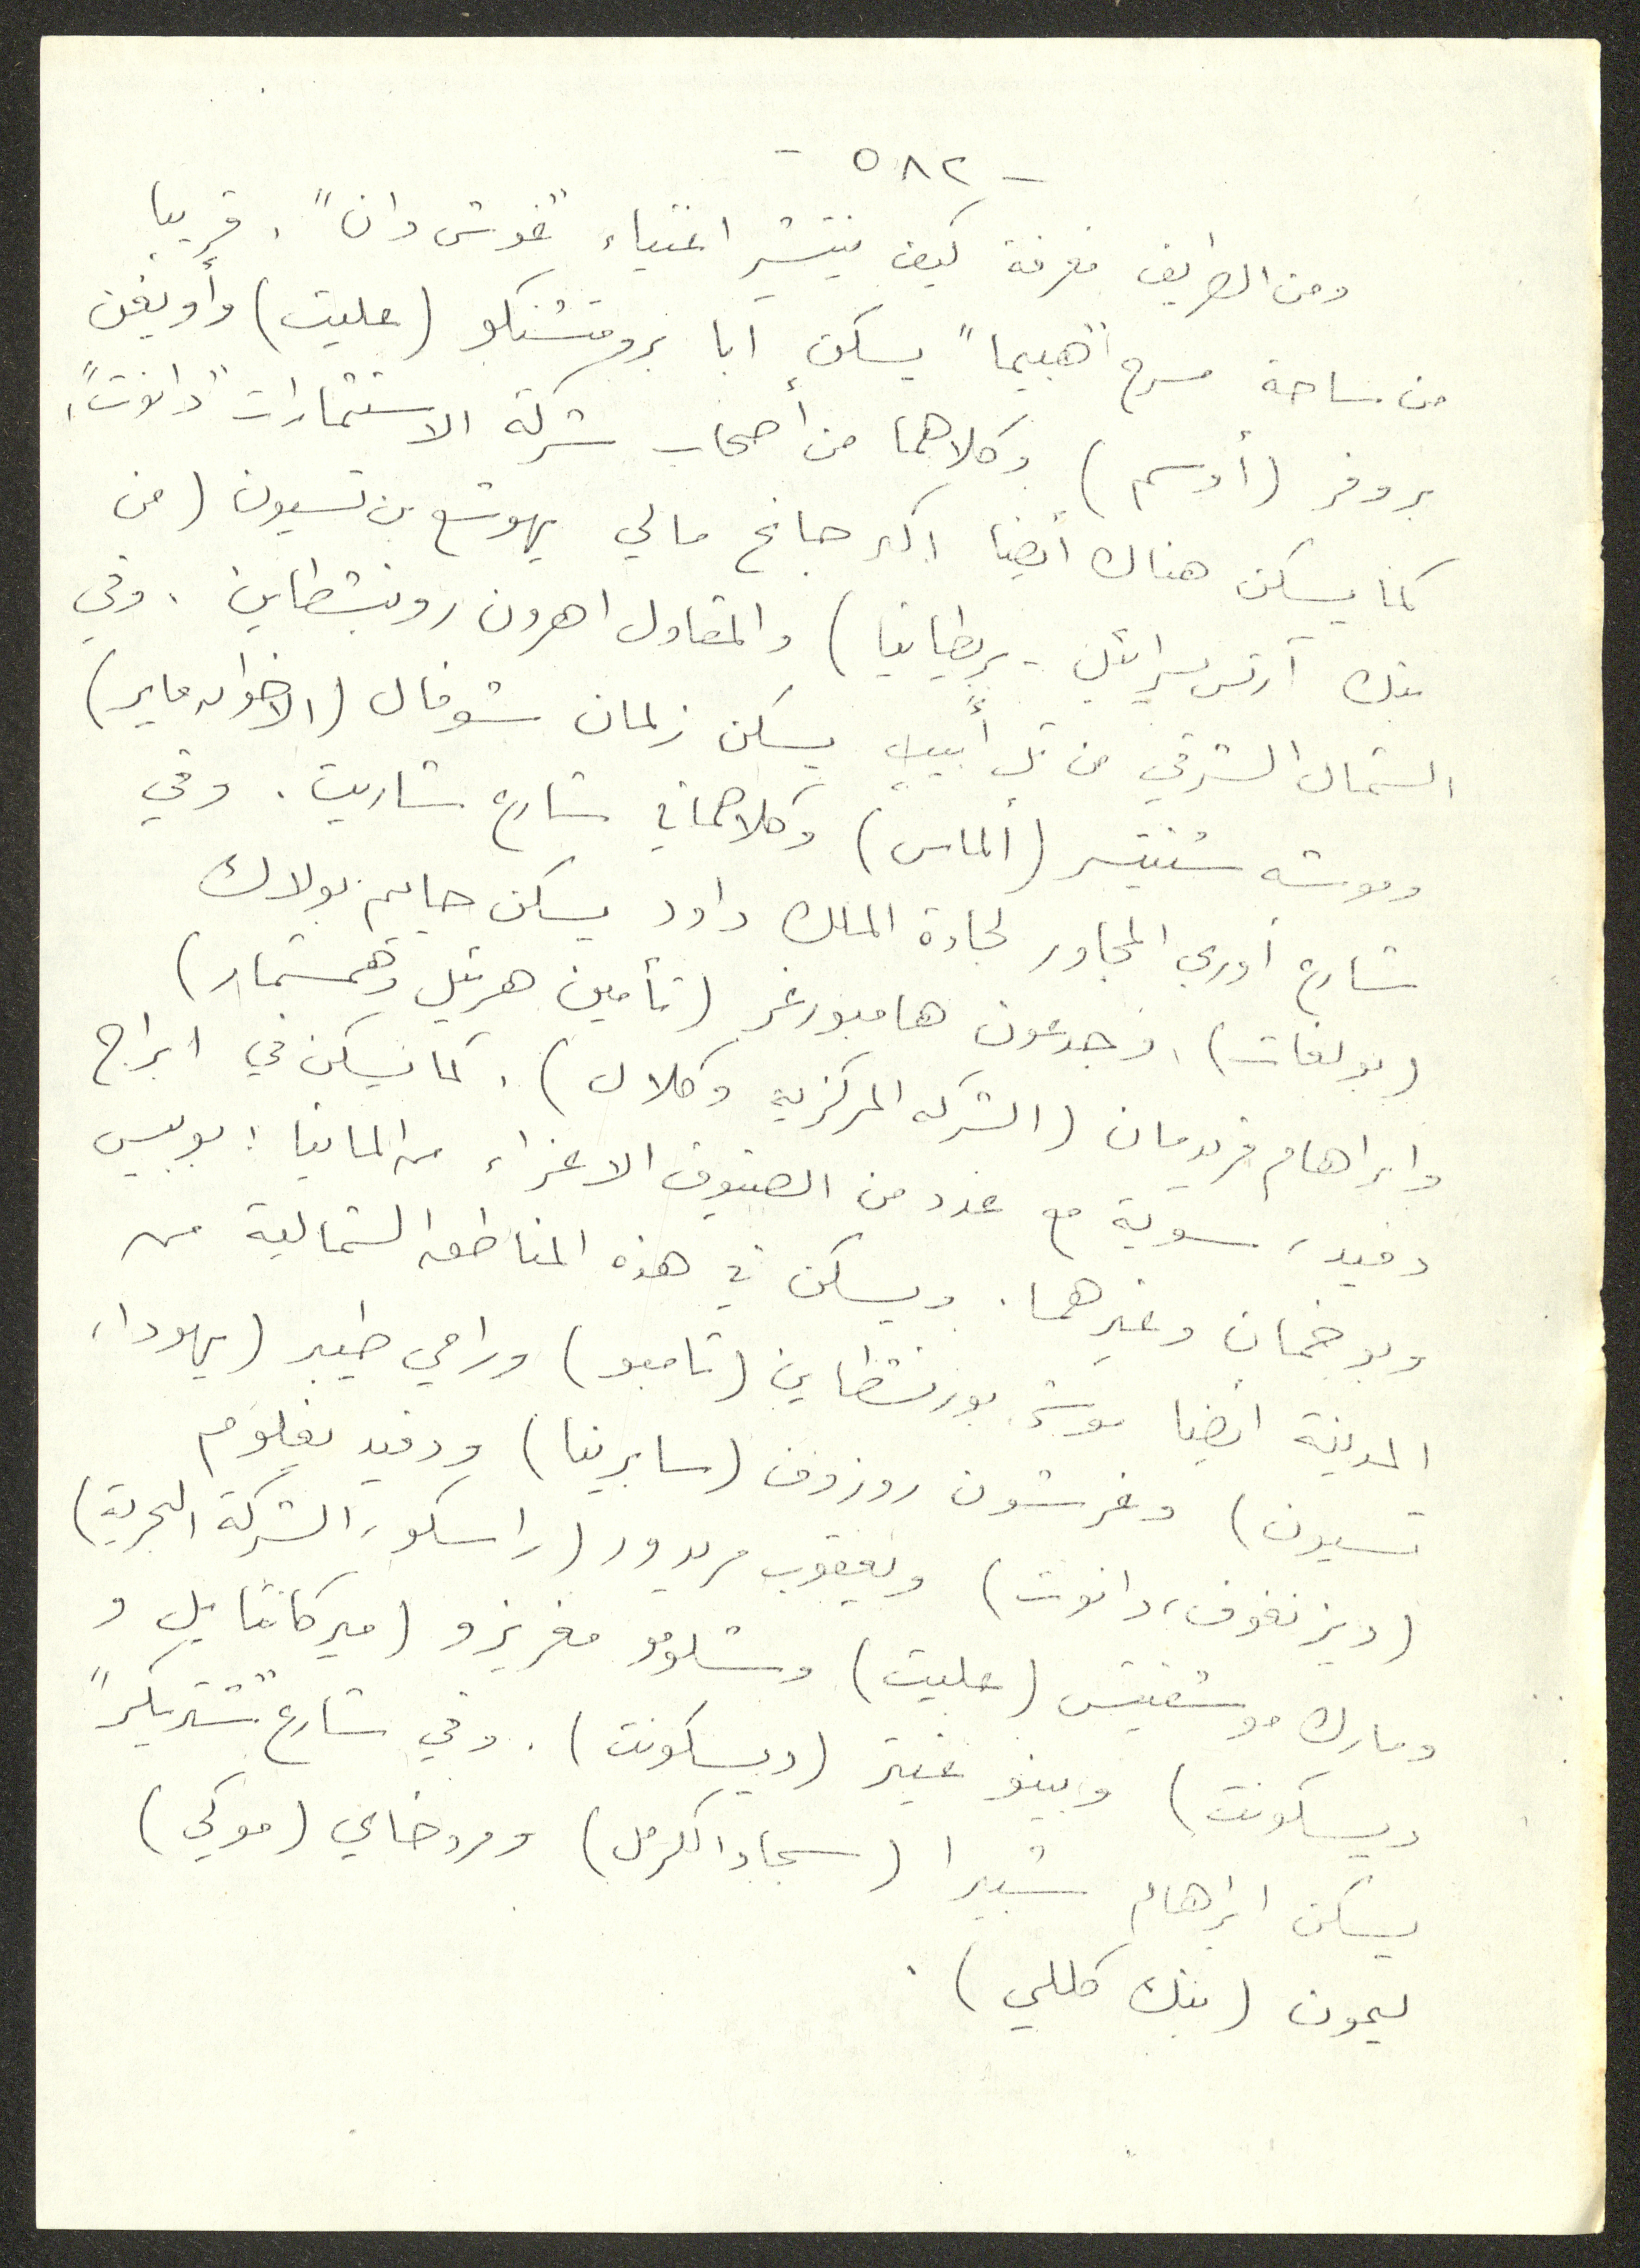 - ٥٨٢ -
ومن الطريف معرفة كيف ينتشر اغنياء "غوش دان". قريبا
من ساحة مسرح "هبيما" يسكن آبا بروفتشنكو (عليت) وأويغن
بروفر (أوسم) وكلاهما من أصحاب شركة الاستثمارات "دانوت"،
كما يسكن هناك أيضا اكبر جانح مالي يهوشع بن تسيون (من
بنك آرتس يسرائيل - بريطانيا) والمقاول اهرون روبنشطاين. وفي
الشمال الشرقي من تل أبيب يسكن زلمان شوفال (الاخوان ماير)
وموشه شنيتسر (ألماس) وكلاهما في شارع شاريت. وفي
شارع أوري المجاور لجادة الملك داود يسكن حاييم بولاك
(بولغات)، وجدعون هامبورغر (تأمين هرئيل وهمشمار)
وابراهام فريدمان (الشركه المركزيه وكلال). كما يسكن في ابراج
دفيد، سوية مع عدد من الضيوف الاعزاء من المانيا: بوبيس
وبوخمان وغيرهما. ويسكن في هذه المناطق الشمالية من
المدينة ايضا موشيه بورنشطاين (تامبو) ورامي طيبر (يهودا،
تسيون) وغرشون روزوف (سابرينا) ودفيد بفلوم
(ديزنغوف، دانوت) ويعقوب مريدور (راسكو، الشركة البحرية)
ومارك موشفيتس (عليت) وشلومو مغريزو (ميركانتايل و
ديسكونت) وبينو غيتر (ديسكونت). وفي شارع "شتريكر"
يسكن ابرهام شبيرا (سجاد الكرمل) ومردخاي (موكي)
ليمون (بنك كللي).